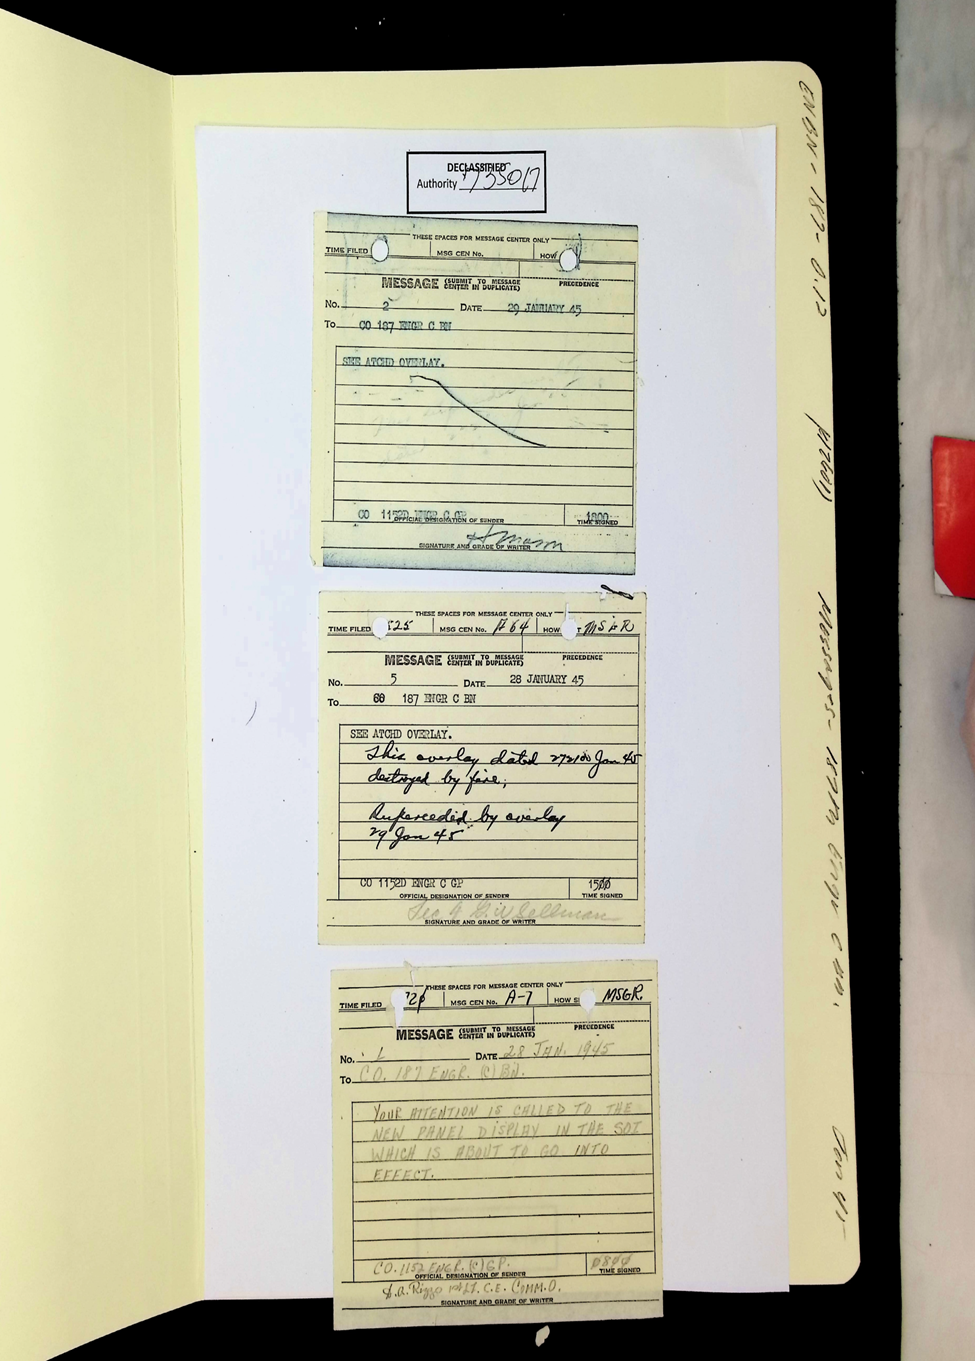 DECLASSIFIED
Authority 735017
THESE SPACES FOR MESSAGE CENTER ONLY
TIME FILED MSG CEN No. HOW
MESSAGE (SUBMIT TO MESSAGE CENTER IN DUPLICATE) PRECEDENCE
No. 2 DATE 29 JANUARY 45
To CO 187 ENGR C BN
SEE ATCHD OVERLAY.
CO 1152D ENGR C GP 1800
OFFICIAL DESIGNATION OF SENDER TIME SIGNED
SIGNATURE AND GRADE OF WRITER
THESE SPACES FOR MESSAGE CENTER ONLY
TIME FILED 525 MSG CEN No. A64 HOW MSGR
MESSAGE (SUBMIT TO MESSAGE CENTER IN DUPLICATE) PRECEDENCE
No. 5 DATE 28 JANUARY 45
To CO 187 ENGR C BN
SEE ATCHD OVERLAY.
This overlay dated 272100 Jan 45
destroyed by fire;
Superceded by overlay
29 Jan 45
CO 1152D ENGR C GP 1500
OFFICIAL DESIGNATION OF SENDER TIME SIGNED
SIGNATURE AND GRADE OF WRITER
THESE SPACES FOR MESSAGE CENTER ONLY
TIME FILED MSG CEN No. A-7 HOW S MSGR.
MESSAGE (SUBMIT TO MESSAGE CENTER IN DUPLICATE) PRECEDENCE
No. 1 DATE 28 JAN. 1945
To CO. 187 ENGR. (C) BN.
YOUR ATTENTION IS CALLED TO THE
NEW PANEL DISPLAY IN THE SOI
WHICH IS ABOUT TO GO INTO
EFFECT.
CO. 1152 ENGR. (C) GP. 0800
OFFICIAL DESIGNATION OF SENDER TIME SIGNED
S.A. Rizzo 1st LT. C.E. COMM.O.
SIGNATURE AND GRADE OF WRITER
ENBN-187-0.12
Messages- 187th Engr C Bn.
Jan 45